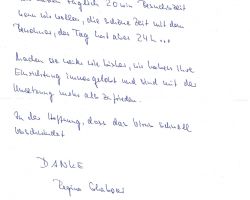 täglich 20 min Besuchszeit
wir wollen, die schöne Zeit mit den
Bewohner, der Tag hat aber 24 h ...
Machen Sie weiter wie bisher, wir haben Ihre
Einrichtung immer gelobt und sind mit der
Umsetzung mehr als zufrieden.
In der Hoffnung, dass das Virus schnell
verschwindet
DANKE
Regina